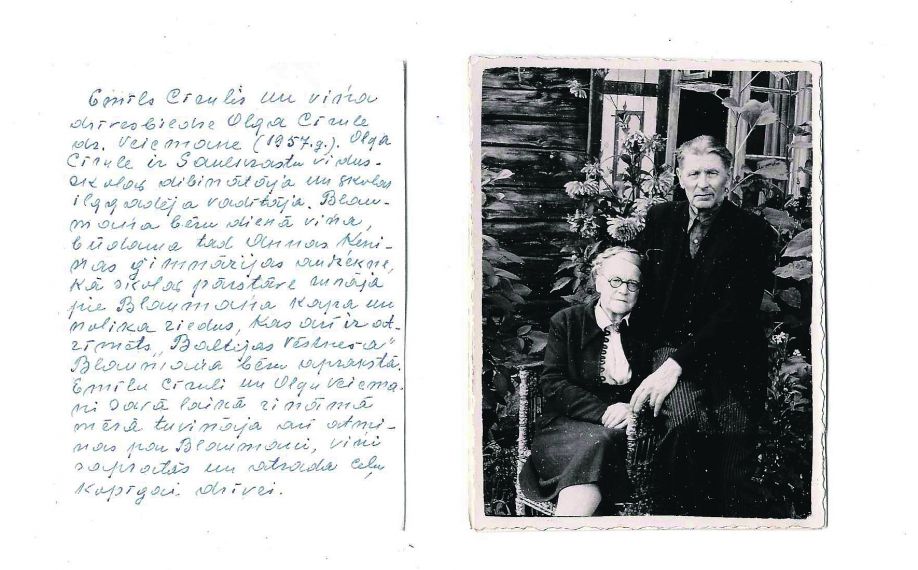 Emīls Cīrulis un viņa
dzīvesbiedre Olga Cīrule
dz. Veicmane (1957.g.). Olga
Cīrule ir Saulkrastu vidus-
skolas dibinātāja un skolas
ilggadēja vadītāja. Blau-
maņa bēru dienā viņa,
būdama tad Annas Keni-
ņas ģimnāzijas audzēkne,
kā skolas pārstāve runāja
pie Blaumaņa kapa un
nolika ziedus, kas arī ir at-
zīmēts "Baltijas Vēstneša"
Blaumaņa bēru aprakstā.
Emīlu Cīruli un Olgu Veicma-
ni savā laikā zināmā
mērā tuvināja arī atmi-
ņas par Blaumani, viņi
sapratās un atrada ceļu
kopīgai dzīvei.